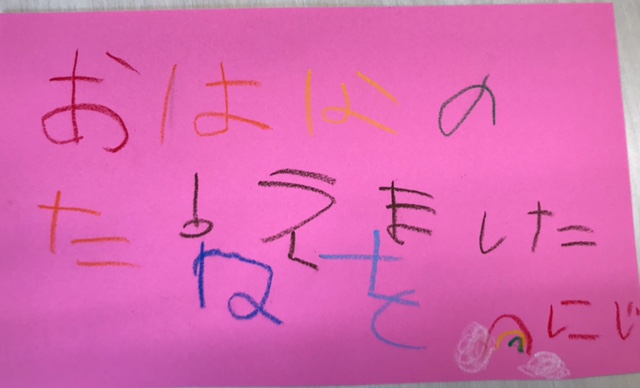 おはなの
た えました
ねを
へにじ